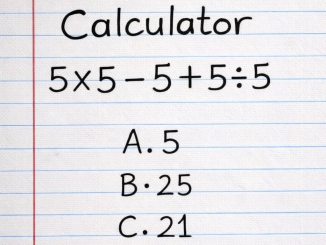 Calculator
5×5−5+5÷5
A. 5
B. 25
C. 21